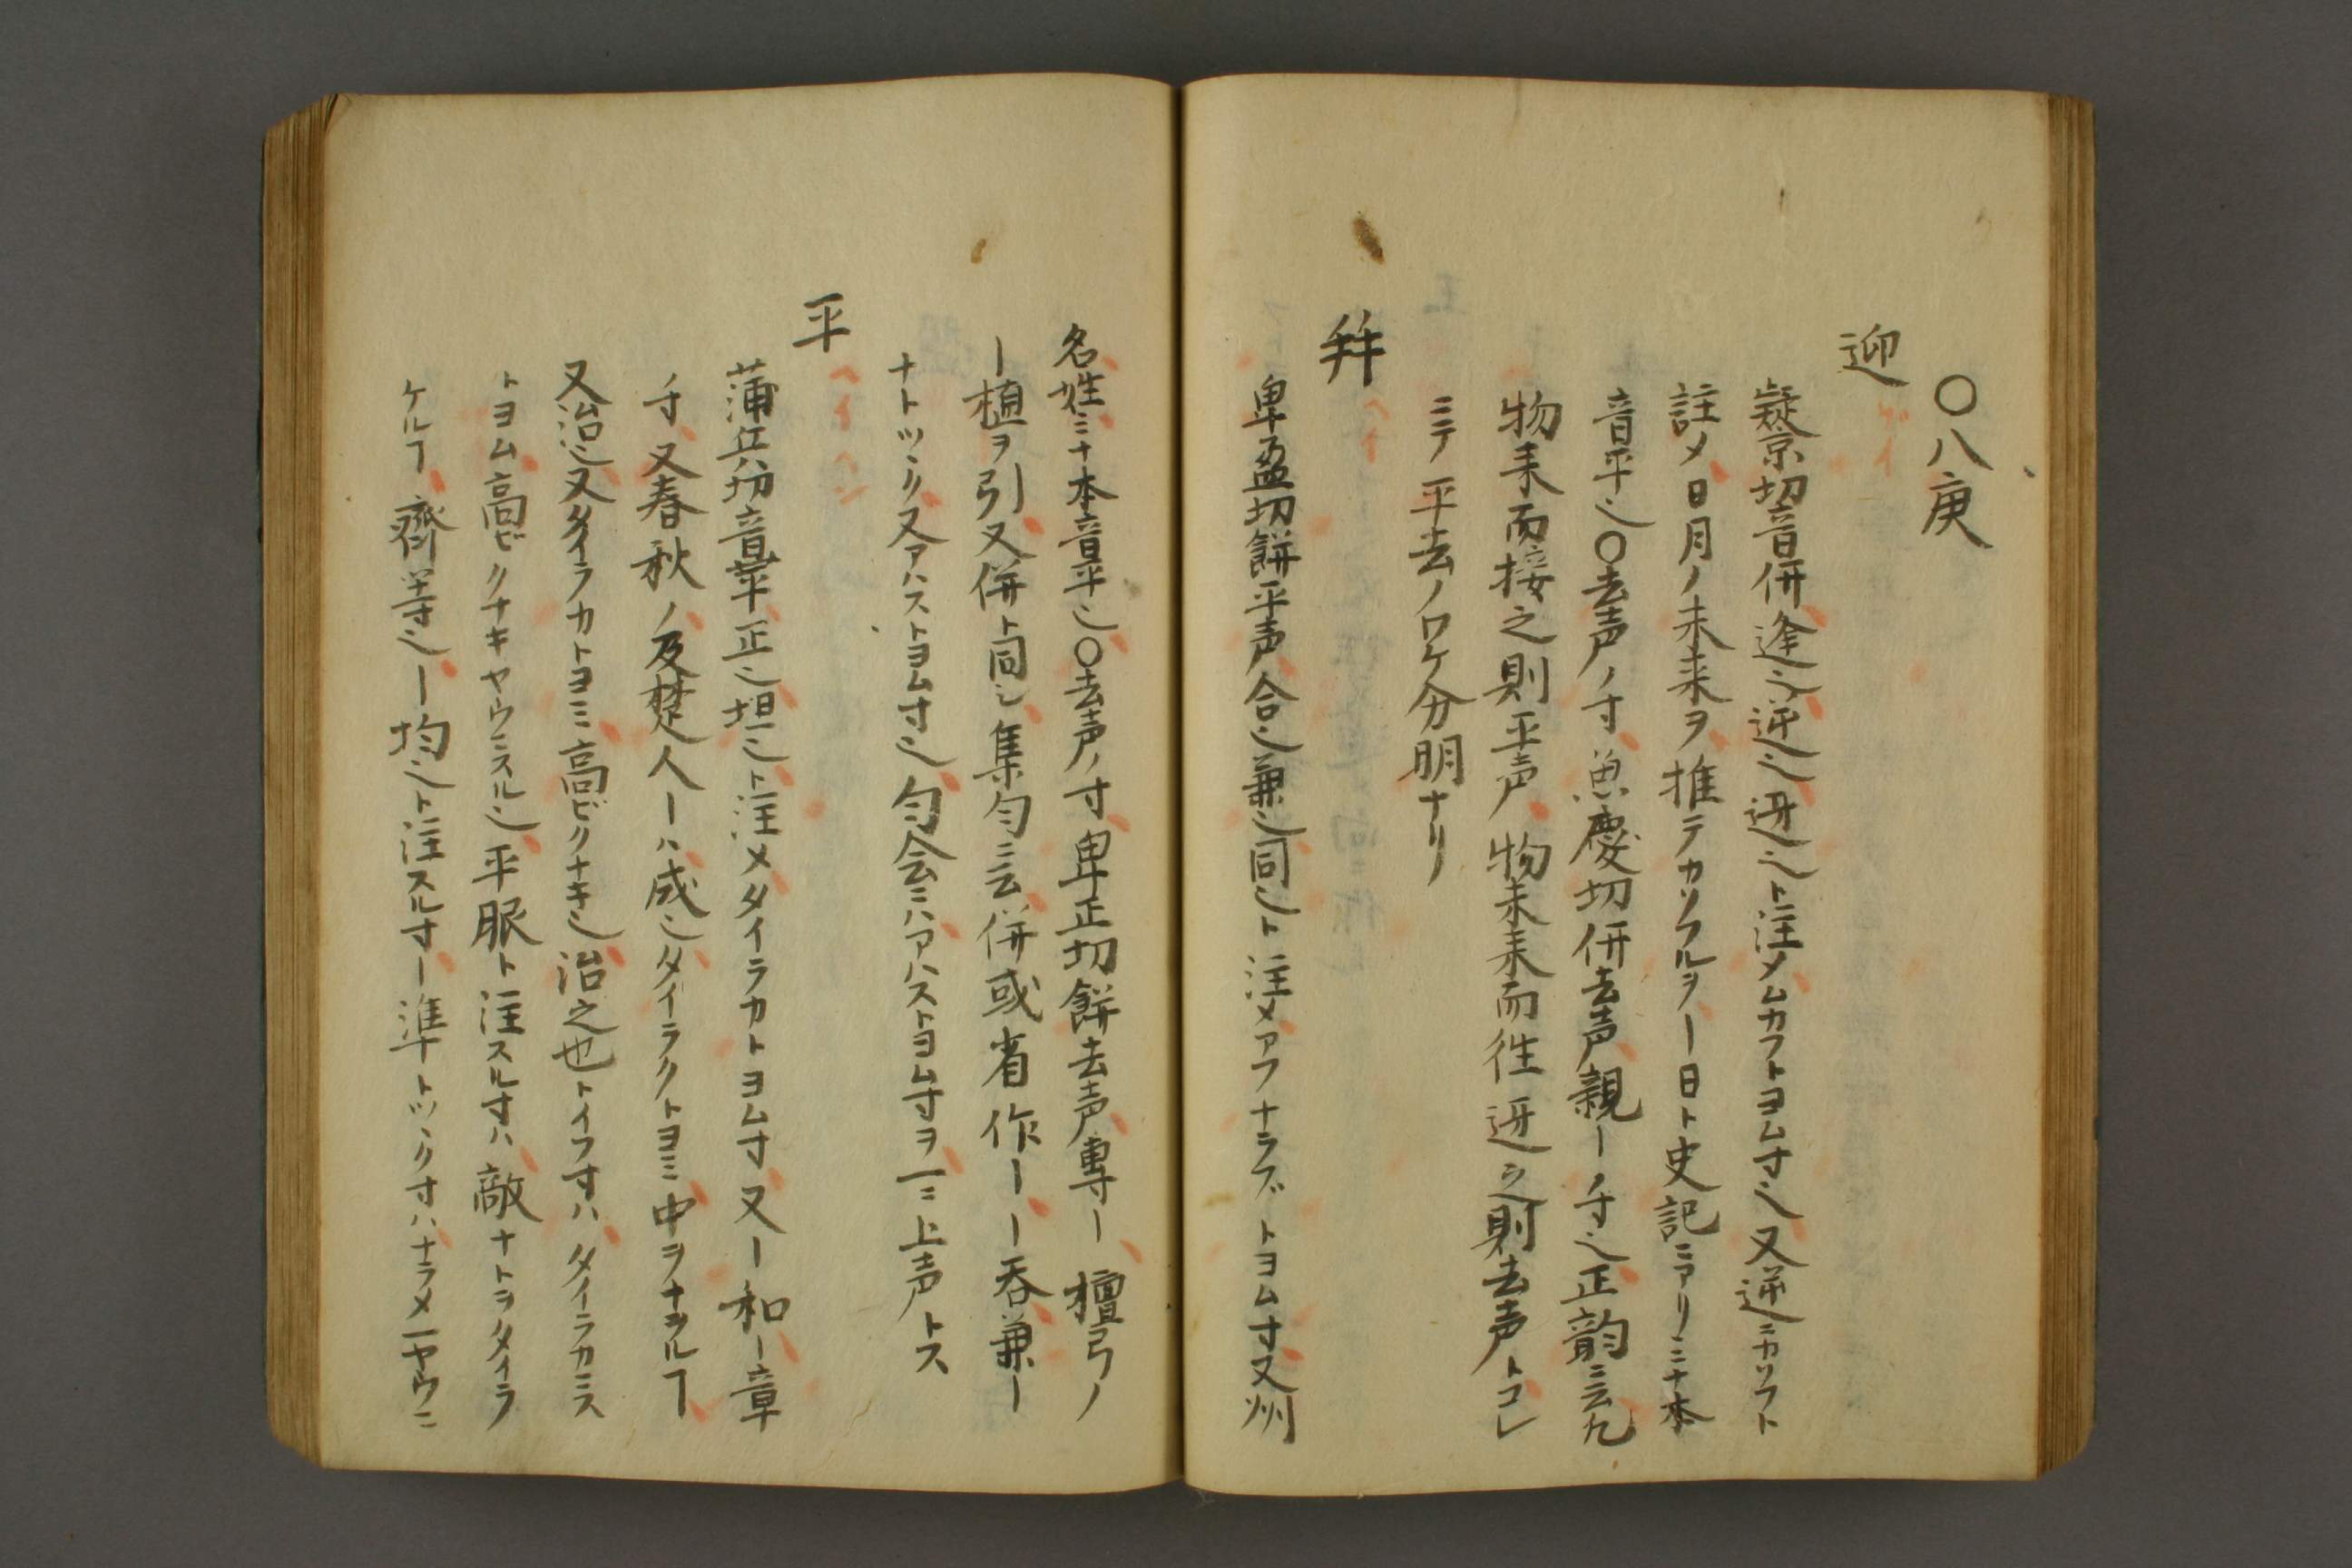 〇八庚
迎
疑京切音併逢也逆也迓也ト注メムカフトヨム寸也又逆ニカソフト
註メ日月ノ未来ヲ推テカソフルヲ一日ト史記ニアリ二寸本
音平也〇去声ノ寸魚慶切併去声親ーノ寸也正韵ニ云凡
物来而接之則平声物未来而徃迓之則去声トコレ
ニテ平去ノワケ分明ナリ
并
卑盈切餅平声合也兼也同也ト注メアフナラブトヨム寸又州
名姓二寸本音平也〇去声ノ寸卑正切餅去声専ー檀弓ノ
ー植ヲ引又併ト同シ集匀ニ云併或省作ーー呑兼ー
ナトツヽク又アハストヨム寸也匀会ニハアハストヨム寸ヲ一ニ上声トス
平
ヘイヘン
蒲兵切音苹正也坦也ト注メタイラカトヨム寸又ー和ー章
ノ寸又春秋ノ及楚人ーハ成也タイラクトヨミ中ヲナヲルヿ
又治也又タイラカトヨミ高ビクナキ也治之也トイフ寸ハタイラカニス
トヨム高ビクナキヤウニスル也平服ト注スル寸ハ敵ナトヲタイラ
ケルヿ齊等也ー均也ト注スル寸ー準トツヽク寸ハナラメ一ヤウニ